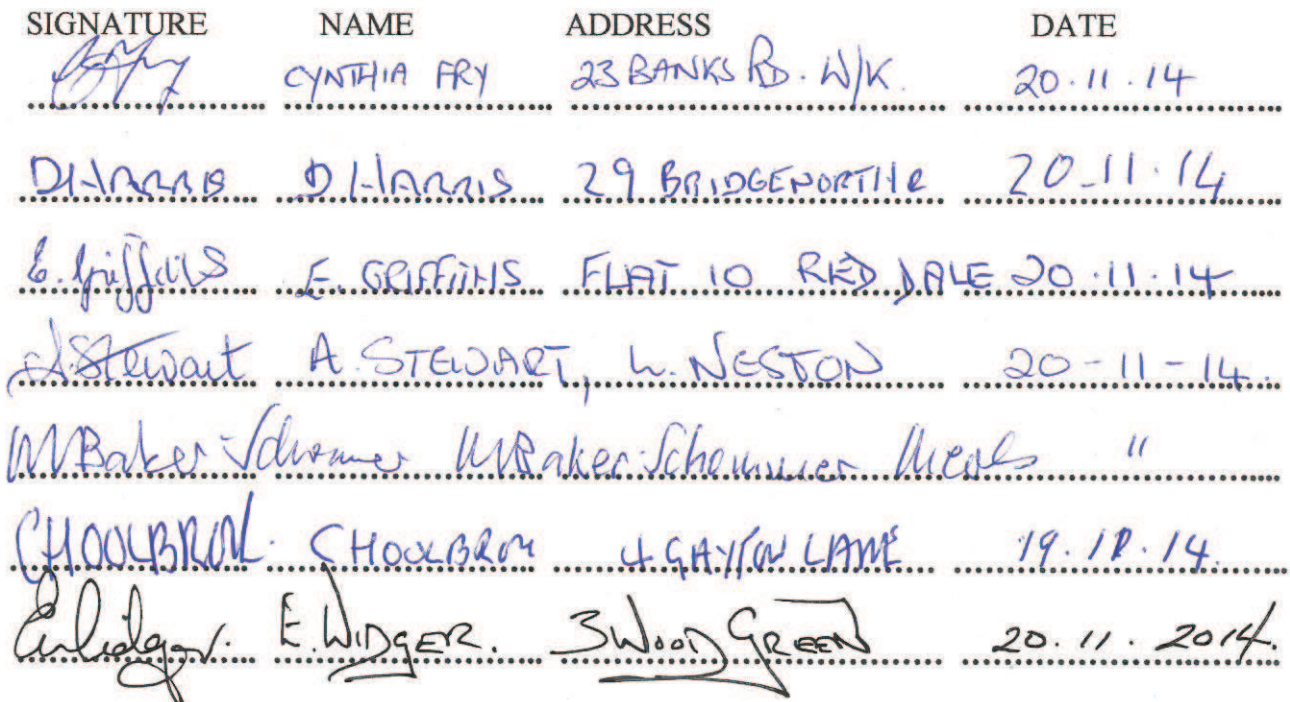 SIGNATURE NAME ADDRESS DATE
CYNTHIA FRY 23 BANKS RD. W/K. 20.11.14
D HARRIS D HARRIS 29 BRIDGENORTH R 20-11.14
E. Griffiths E. GRIFFITHS FLAT 10 RED DALE 20.11.14
A. Stewart A. STEWART, L. NESTON 20-11-14.
M Baker-Schommer M Baker-Schommer "
C HOOLBROM. C HOOLBROM 4 GAYTON LANE 19.11.14.
E Widger. E. WIDGER. 3 WOOD GREEN 20.11.2014.